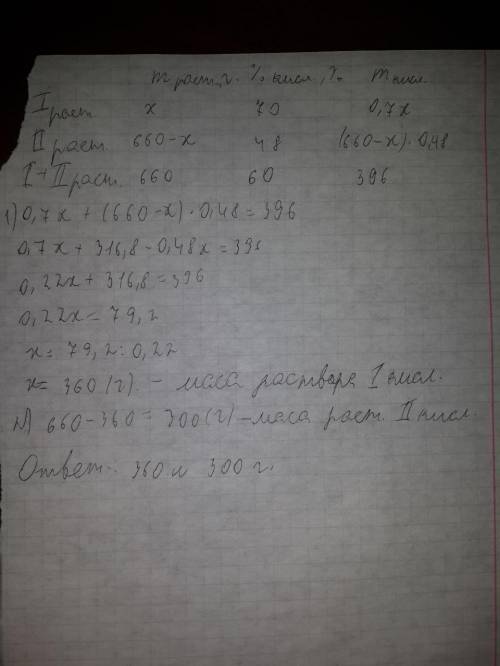 m раст., г. % кисл., % m кисл.
I раст. x 70 0,7x
II раст. 660-x 48 (660-x)·0,48
I+II раст. 660 60 396
1) 0,7x + (660-x)·0,48=396
0,7x + 316,8-0,48x=396
0,22x+316,8=396
0,22x=79,2
x=79,2:0,22
x=360(г). - маса раствора I кисл.
2) 660-360=300(г)-маса раст. II кисл.
Ответ: 360 и 300 г.